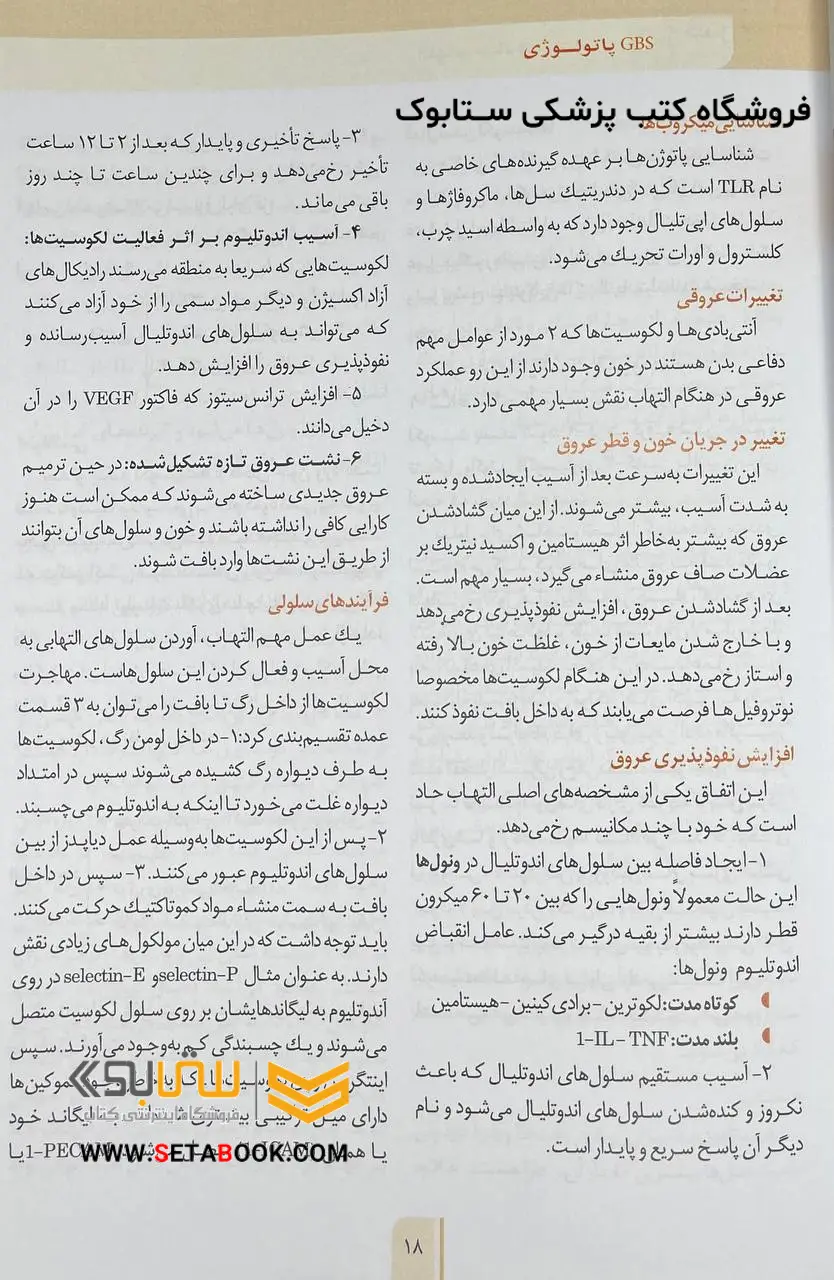 GBS پاتولوژی
فروشگاه کتب پزشکی ستابوک
شناسایی میکروب‌ها
شناسایی پاتوژن‌ها بر عهده گیرنده‌های خاصی به
نام TLR است که در دندریتیک سل‌ها، ماکروفاژها و
سلول‌های اپی‌تلیال وجود دارد که به واسطه اسید چرب،
کلسترول و اورات تحریک می‌شود.
تغییرات عروقی
آنتی‌بادی‌ها و لکوسیت‌ها که ۲ مورد از عوامل مهم
دفاعی بدن هستند در خون وجود دارند از این رو عملکرد
عروقی در هنگام التهاب نقش بسیار مهمی دارد.
تغییر در جریان خون و قطر عروق
این تغییرات به‌سرعت بعد از آسیب ایجادشده و بسته
به شدت آسیب، بیشتر می‌شوند. از این میان گشادشدن
عروق که بیشتر به‌خاطر اثر هیستامین و اکسید نیتریک بر
عضلات صاف عروق منشاء می‌گیرد، بسیار مهم است.
بعد از گشادشدن عروق، افزایش نفوذپذیری رخ می‌دهد
و با خارج شدن مایعات از خون، غلظت خون بالا رفته
و استاز رخ می‌دهد. در این هنگام لکوسیت‌ها مخصوصا
نوتروفیل‌ها فرصت می‌یابند که به داخل بافت نفوذ کنند.
افزایش نفوذپذیری عروق
این اتفاق یکی از مشخصه‌های اصلی التهاب حاد
است که خود با چند مکانیسم رخ می‌دهد.
۱- ایجاد فاصله بین سلول‌های اندوتلیال در ونول‌ها
این حالت معمولاً ونول‌هایی را که بین ۲۰ تا ۶۰ میکرون
قطر دارند بیشتر از بقیه درگیر می‌کند. عامل انقباض
اندوتلیوم ونول‌ها:
کوتاه مدت: لکوترین - برادی کینین - هیستامین
بلند مدت: 1-IL - TNF
۲- آسیب مستقیم سلول‌های اندوتلیال که باعث
نکروز و کنده‌شدن سلول‌های اندوتلیال می‌شود و نام
دیگر آن پاسخ سریع و پایدار است.
۳- پاسخ تأخیری و پایدار که بعد از ۲ تا ۱۲ ساعت
تأخیر رخ می‌دهد و برای چندین ساعت تا چند روز
باقی می‌ماند.
۴- آسیب اندوتلیوم بر اثر فعالیت لکوسیت‌ها:
لکوسیت‌هایی که سریعا به منطقه می‌رسند رادیکال‌های
آزاد اکسیژن و دیگر مواد سمی را از خود آزاد می‌کنند
که می‌تواند به سلول‌های اندوتلیال آسیب‌رسانده و
نفوذپذیری عروق را افزایش دهد.
۵- افزایش ترانس‌سیتوز که فاکتور VEGF را در آن
دخیل می‌دانند.
۶- نشت عروق تازه تشکیل‌شده: در حین ترمیم
عروق جدیدی ساخته می‌شوند که ممکن است هنوز
کارایی کافی را نداشته باشند و خون و سلول‌های آن بتوانند
از طریق این نشت‌ها وارد بافت شوند.
فرآیندهای سلولی
یک عمل مهم التهاب، آوردن سلول‌های التهابی به
محل آسیب و فعال کردن این سلول‌هاست. مهاجرت
لکوسیت‌ها از داخل رگ تا بافت را می‌توان به ۳ قسمت
عمده تقسیم‌بندی کرد: ۱- در داخل لومن رگ، لکوسیت‌ها
به طرف دیواره رگ کشیده می‌شوند سپس در امتداد
دیواره غلت می‌خورد تا اینکه به اندوتلیوم می‌چسبند.
۲- پس از این لکوسیت‌ها به‌وسیله عمل دیاپدز از بین
سلول‌های اندوتلیوم عبور می‌کنند. ۳- سپس در داخل
بافت به سمت منشاء مواد کموتاکتیک حرکت می‌کنند.
باید توجه داشت که در این میان مولکول‌های زیادی نقش
دارند. به عنوان مثال selectin-P و selectin-E در روی
آندوتلیوم به لیگاندهایشان بر روی سلول لکوسیت متصل
می‌شوند و یک چسبندگی کم به‌وجود می‌آورند. سپس
دارای میل ترکیبی بیشتری با لیگاند خود
یا 1-PECAM
ستابوک
فروشگاه اینترنتی کتاب
WWW.SETABOOK.COM
۱۸